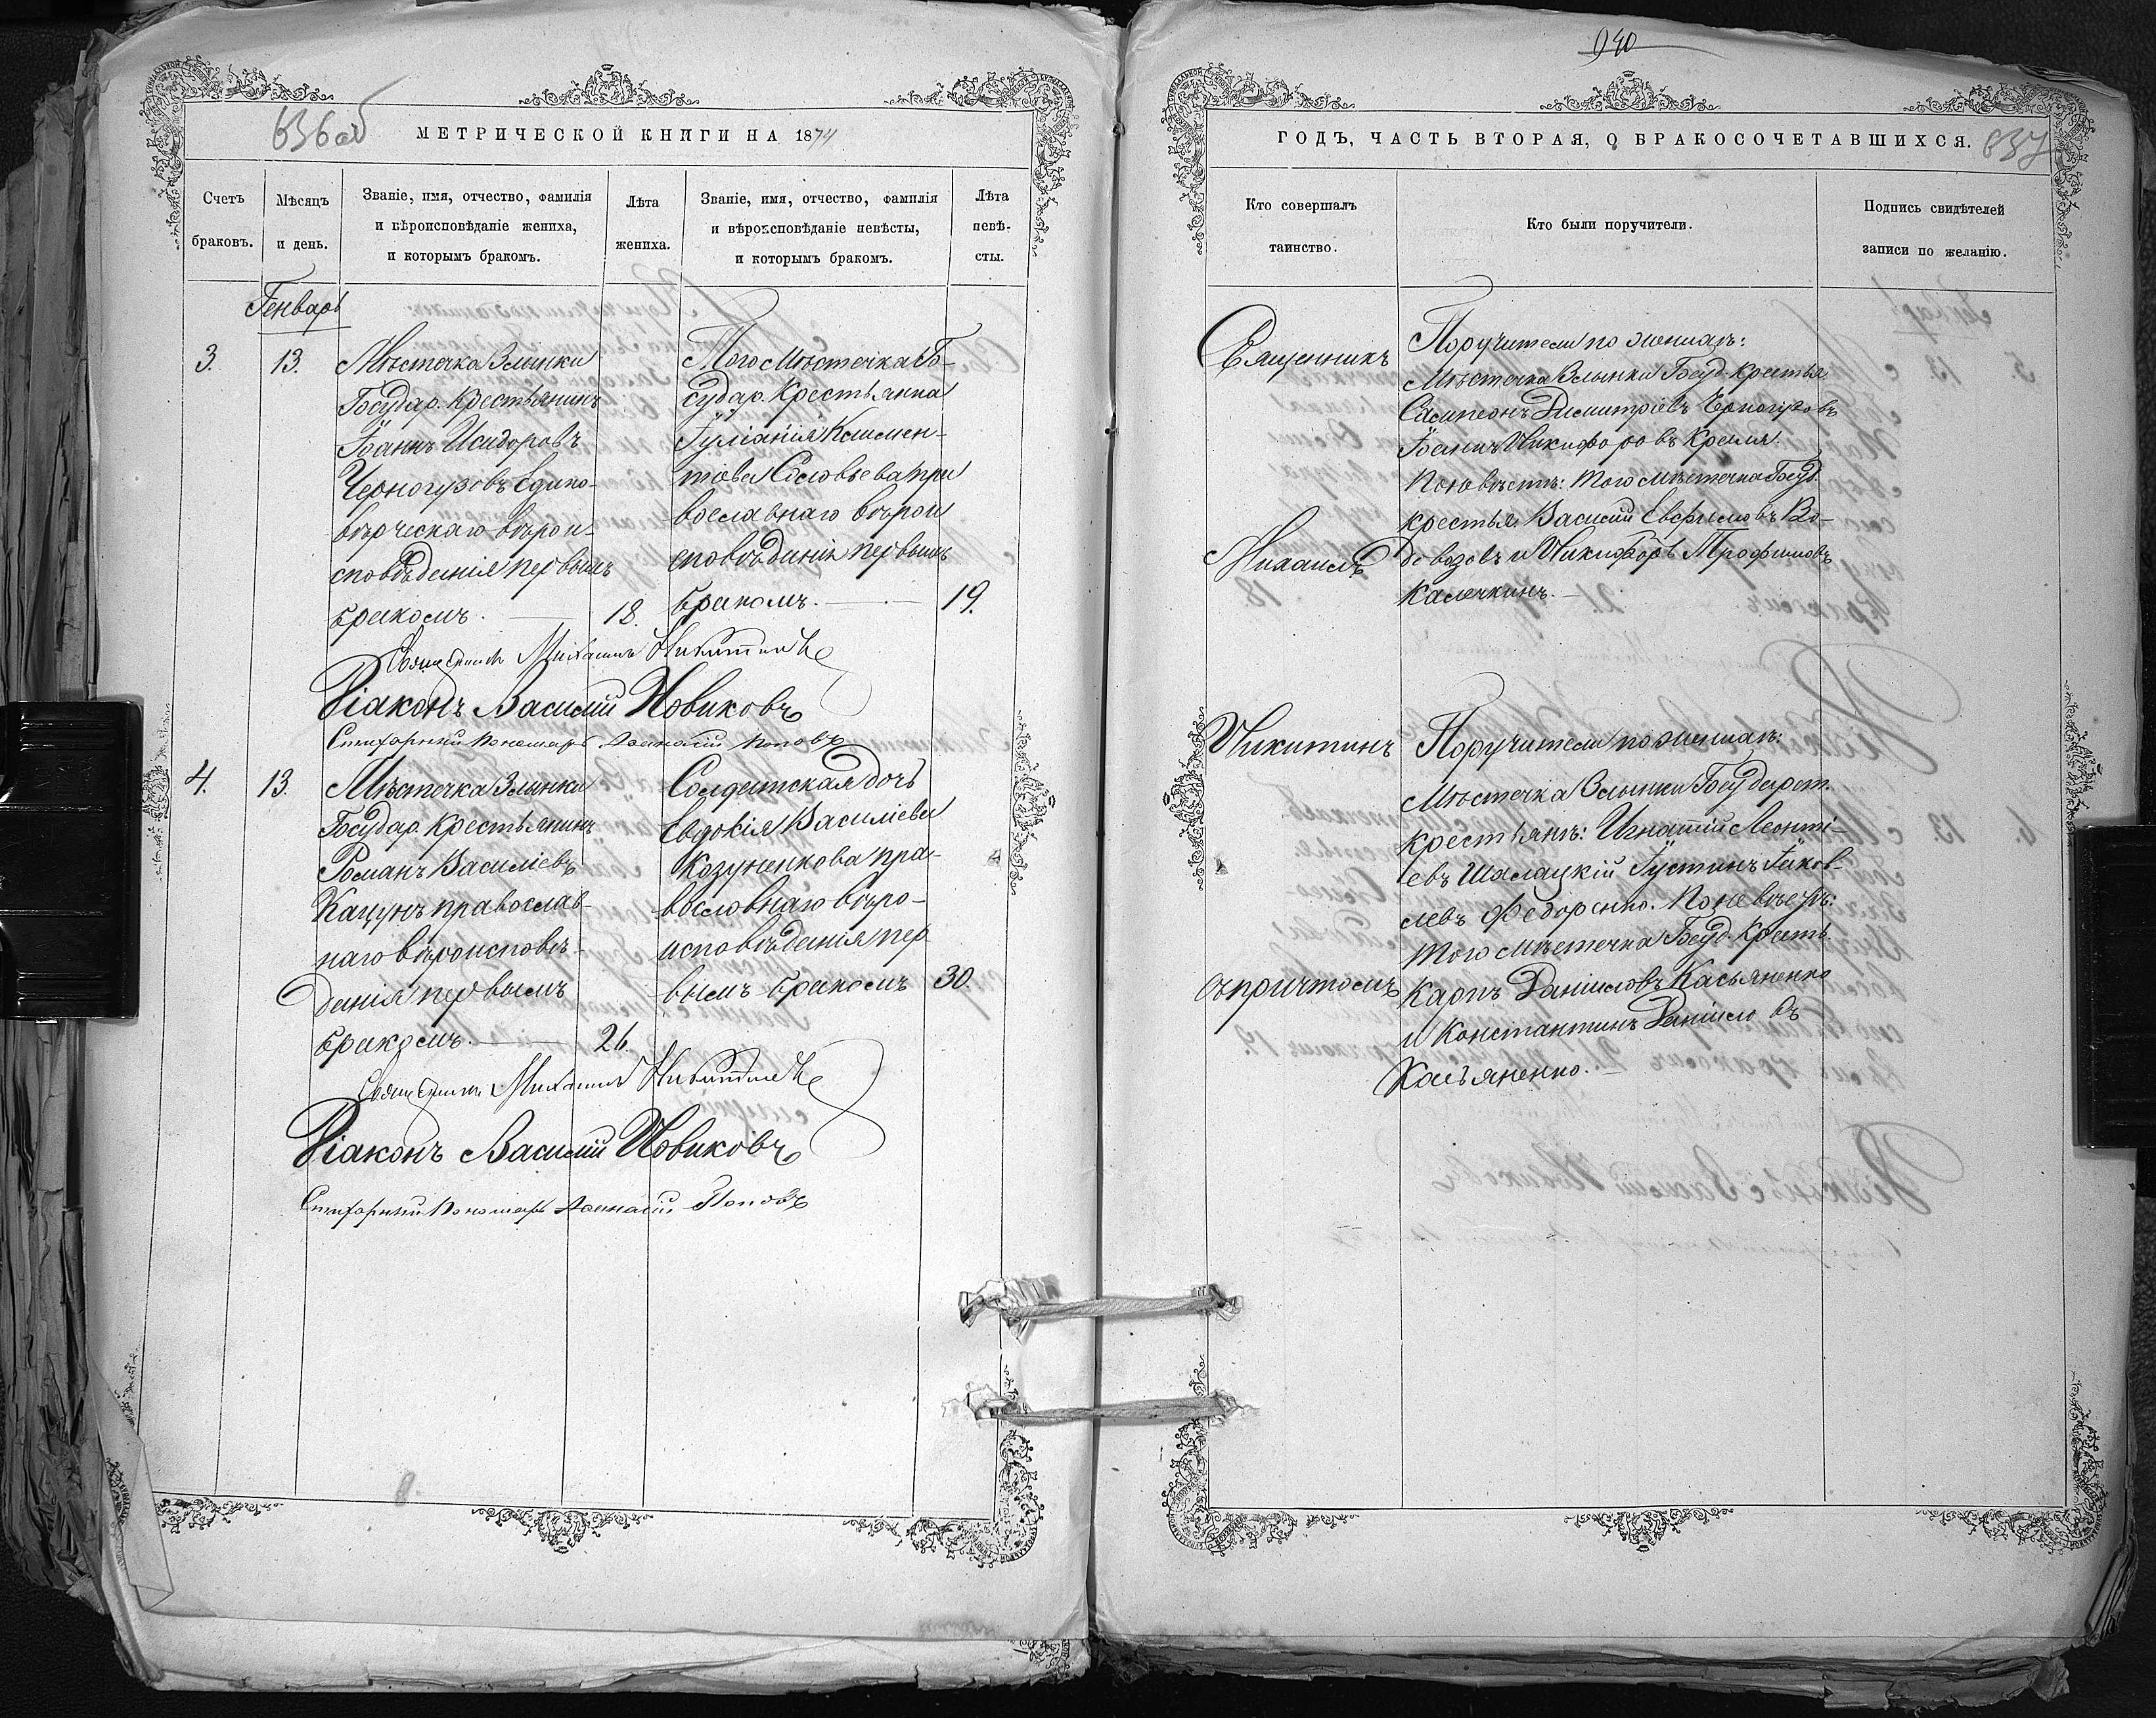 636 об
МЕТРИЧЕСКОЙ КНИГИ НА 1874
Счетъ
браковъ.
Мѣсяцъ
и день.
Званіе, имя, отчество, фамилія
и вѣроисповѣданіе жениха,
и которымъ бракомъ.
Лѣта
жениха.
Званіе, имя, отчество, фамилія
и вѣроисповѣданіе невѣсты,
и которымъ бракомъ.
Лѣта
невѣ-
сты.
Генварь
3.
13.
Мѣстечка Злынки
Государ. Крестьянинъ
Іоаннъ Исидоровъ
Черногузовъ Едино-
вѣрческаго вѣрои-
сповѣданія первымъ
бракомъ.
18.
Того мѣстечка Го-
судар. Крестьянка
Іуліанія Климен-
тіева Соловьева пра
вославнаго вѣрои
сповѣданія первымъ
бракомъ.
19.
Священникъ Михаилъ Никитинъ
Діаконъ Василій Новиковъ
Стихарный Пономарь Афанасій Поповъ
4.
13.
Мѣстечка Злынки
Государ. Крестьянинъ
Романъ Василіевъ
Кацунъ православ-
наго вѣроисповѣ-
данія первымъ
бракомъ.
26.
Солдатская дочь
Евдокія Василіева
Козуненкова пра-
вославнаго вѣро-
исповѣданія пер
вымъ бракомъ
30.
Священникъ Михаилъ Никитинъ
Діаконъ Василій Новиковъ
Стихарный Пономарь Афанасій Поповъ
940
ГОДЪ, ЧАСТЬ ВТОРАЯ, О БРАКОСОЧЕТАВШИХСЯ.
637
Кто совершалъ
таинство.
Кто были поручители.
Подпись свидѣтелей
записи по желанію.
Священникъ
Михаилъ
Никитинъ
съ причтомъ
Поручители по женихѣ:
Мѣстечка Злынки Госуд. Крестья
Сампсонъ Димитріевъ Черногузовъ
Іоаннъ Никифоровъ Кремля.
По невѣстѣ: того мѣстечка Госуд.
крестья. Василій Евфимовъ Во-
довозовъ и Никифоръ Трофимовъ
Калечкинъ.
Поручители по женихѣ:
Мѣстечка Злынки Государст.
крестьянъ: Игнатій Леонті-
евъ Шклацкій Іустинъ Іаков-
левъ Федоренко. По невѣстѣ:
того мѣстечка Госуд. Кресть.
Карпъ Даніиловъ Касьяненко
и Константинъ Даніиловъ
Касьяненко.